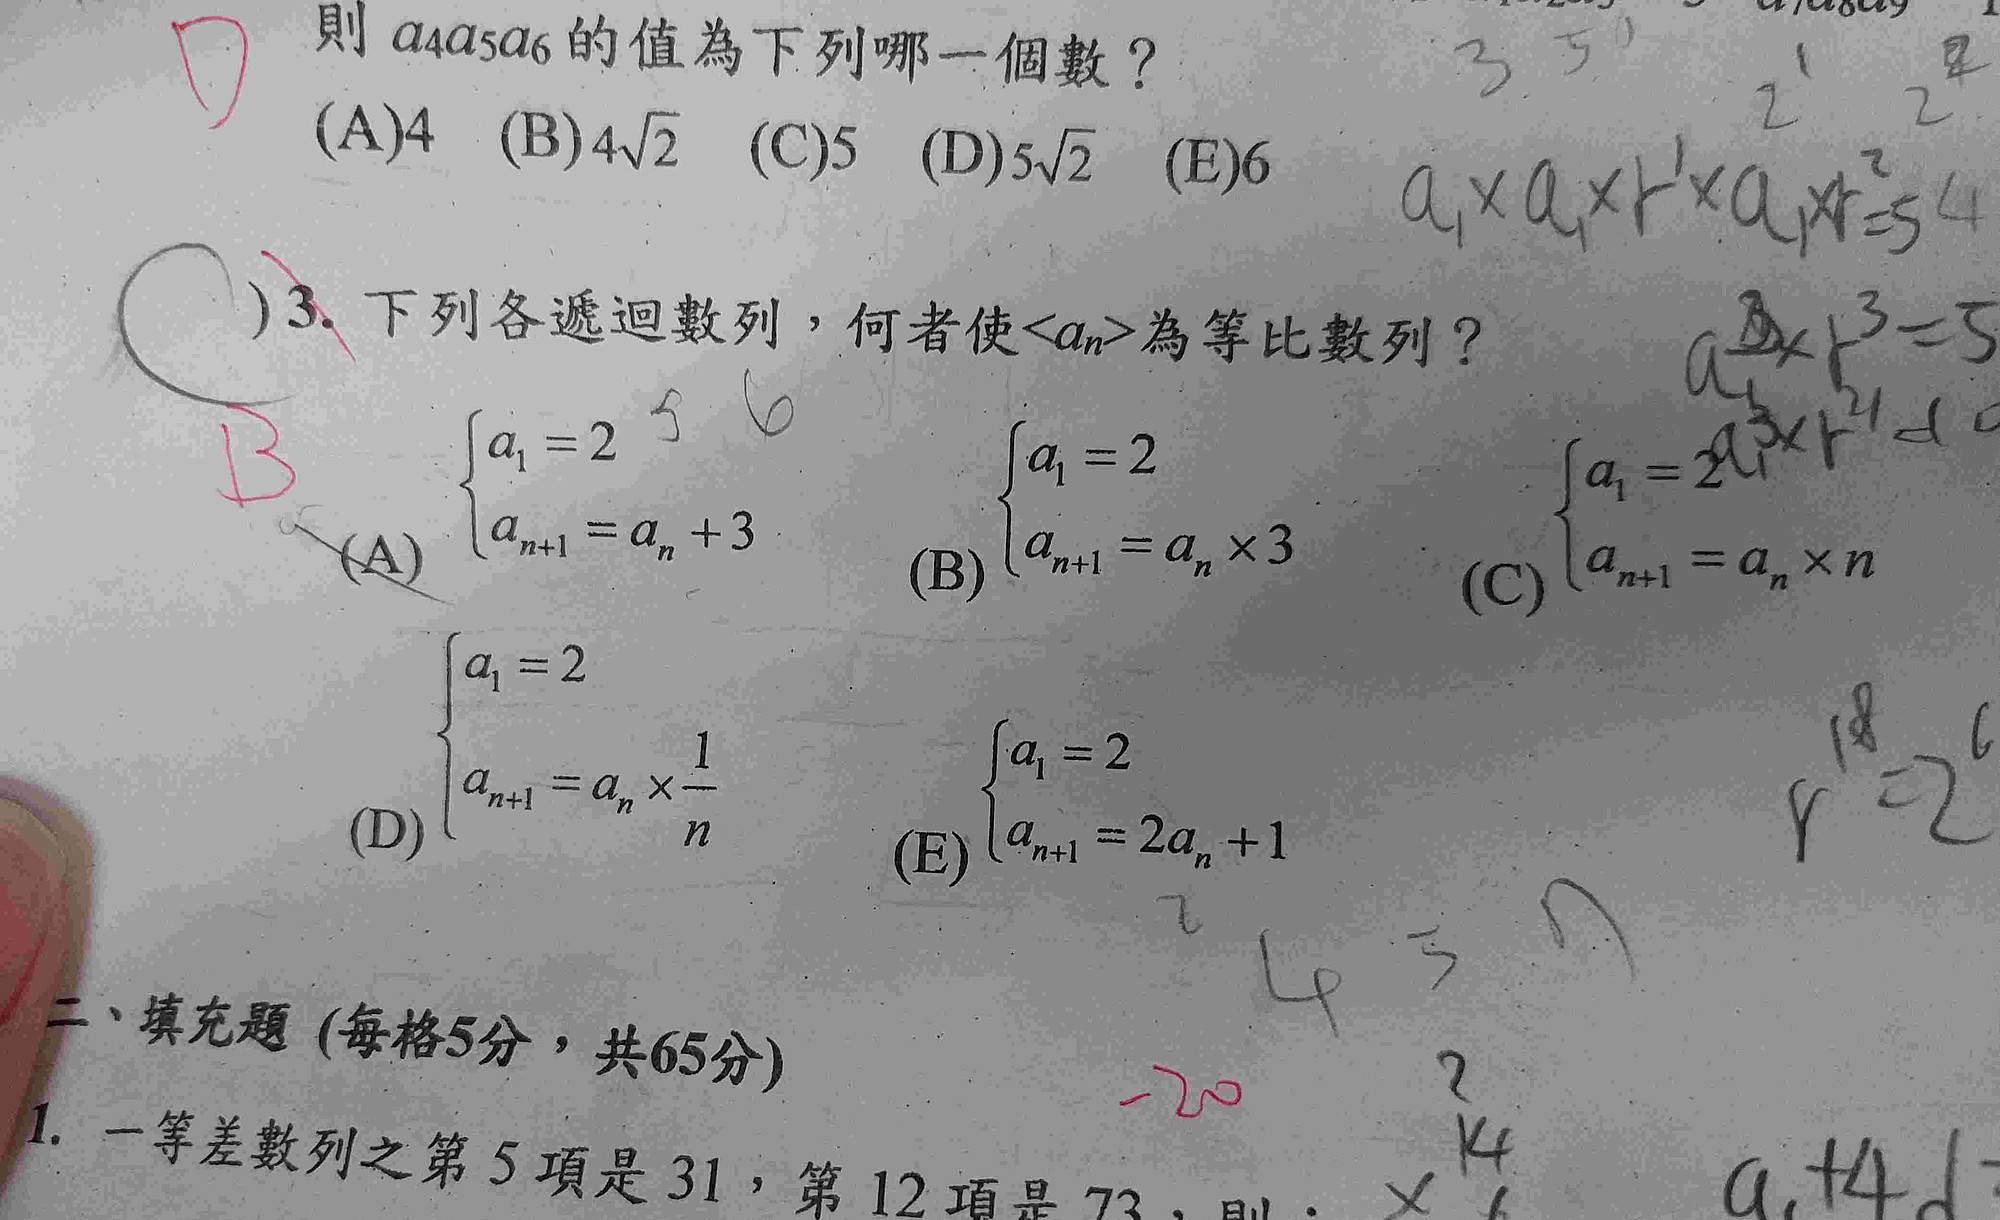 則 a₄a₅a₆ 的值為下列哪一個數？
D
(A)4 (B)4√2 (C)5 (D)5√2 (E)6
3 5
2¹ 2
a₁×a₁×r¹×a₁×r²=5 4
)3. 下列各遞迴數列，何者使<aₙ>為等比數列？
a₁³×r³=5
B
5 6
(A) { a₁ = 2
aₙ₊₁ = aₙ + 3
(B) { a₁ = 2
aₙ₊₁ = aₙ × 3
(C) { a₁ = 2
aₙ₊₁ = aₙ × n
a₁³×r²¹
(D) { a₁ = 2
aₙ₊₁ = aₙ × 1/n
(E) { a₁ = 2
aₙ₊₁ = 2aₙ + 1
r¹⁸=2
2 4 5
二、填充題 (每格5分，共65分)
-20
2
14
×6
1. 一等差數列之第 5 項是 31，第 12 項是 73，則：
a₁+4d